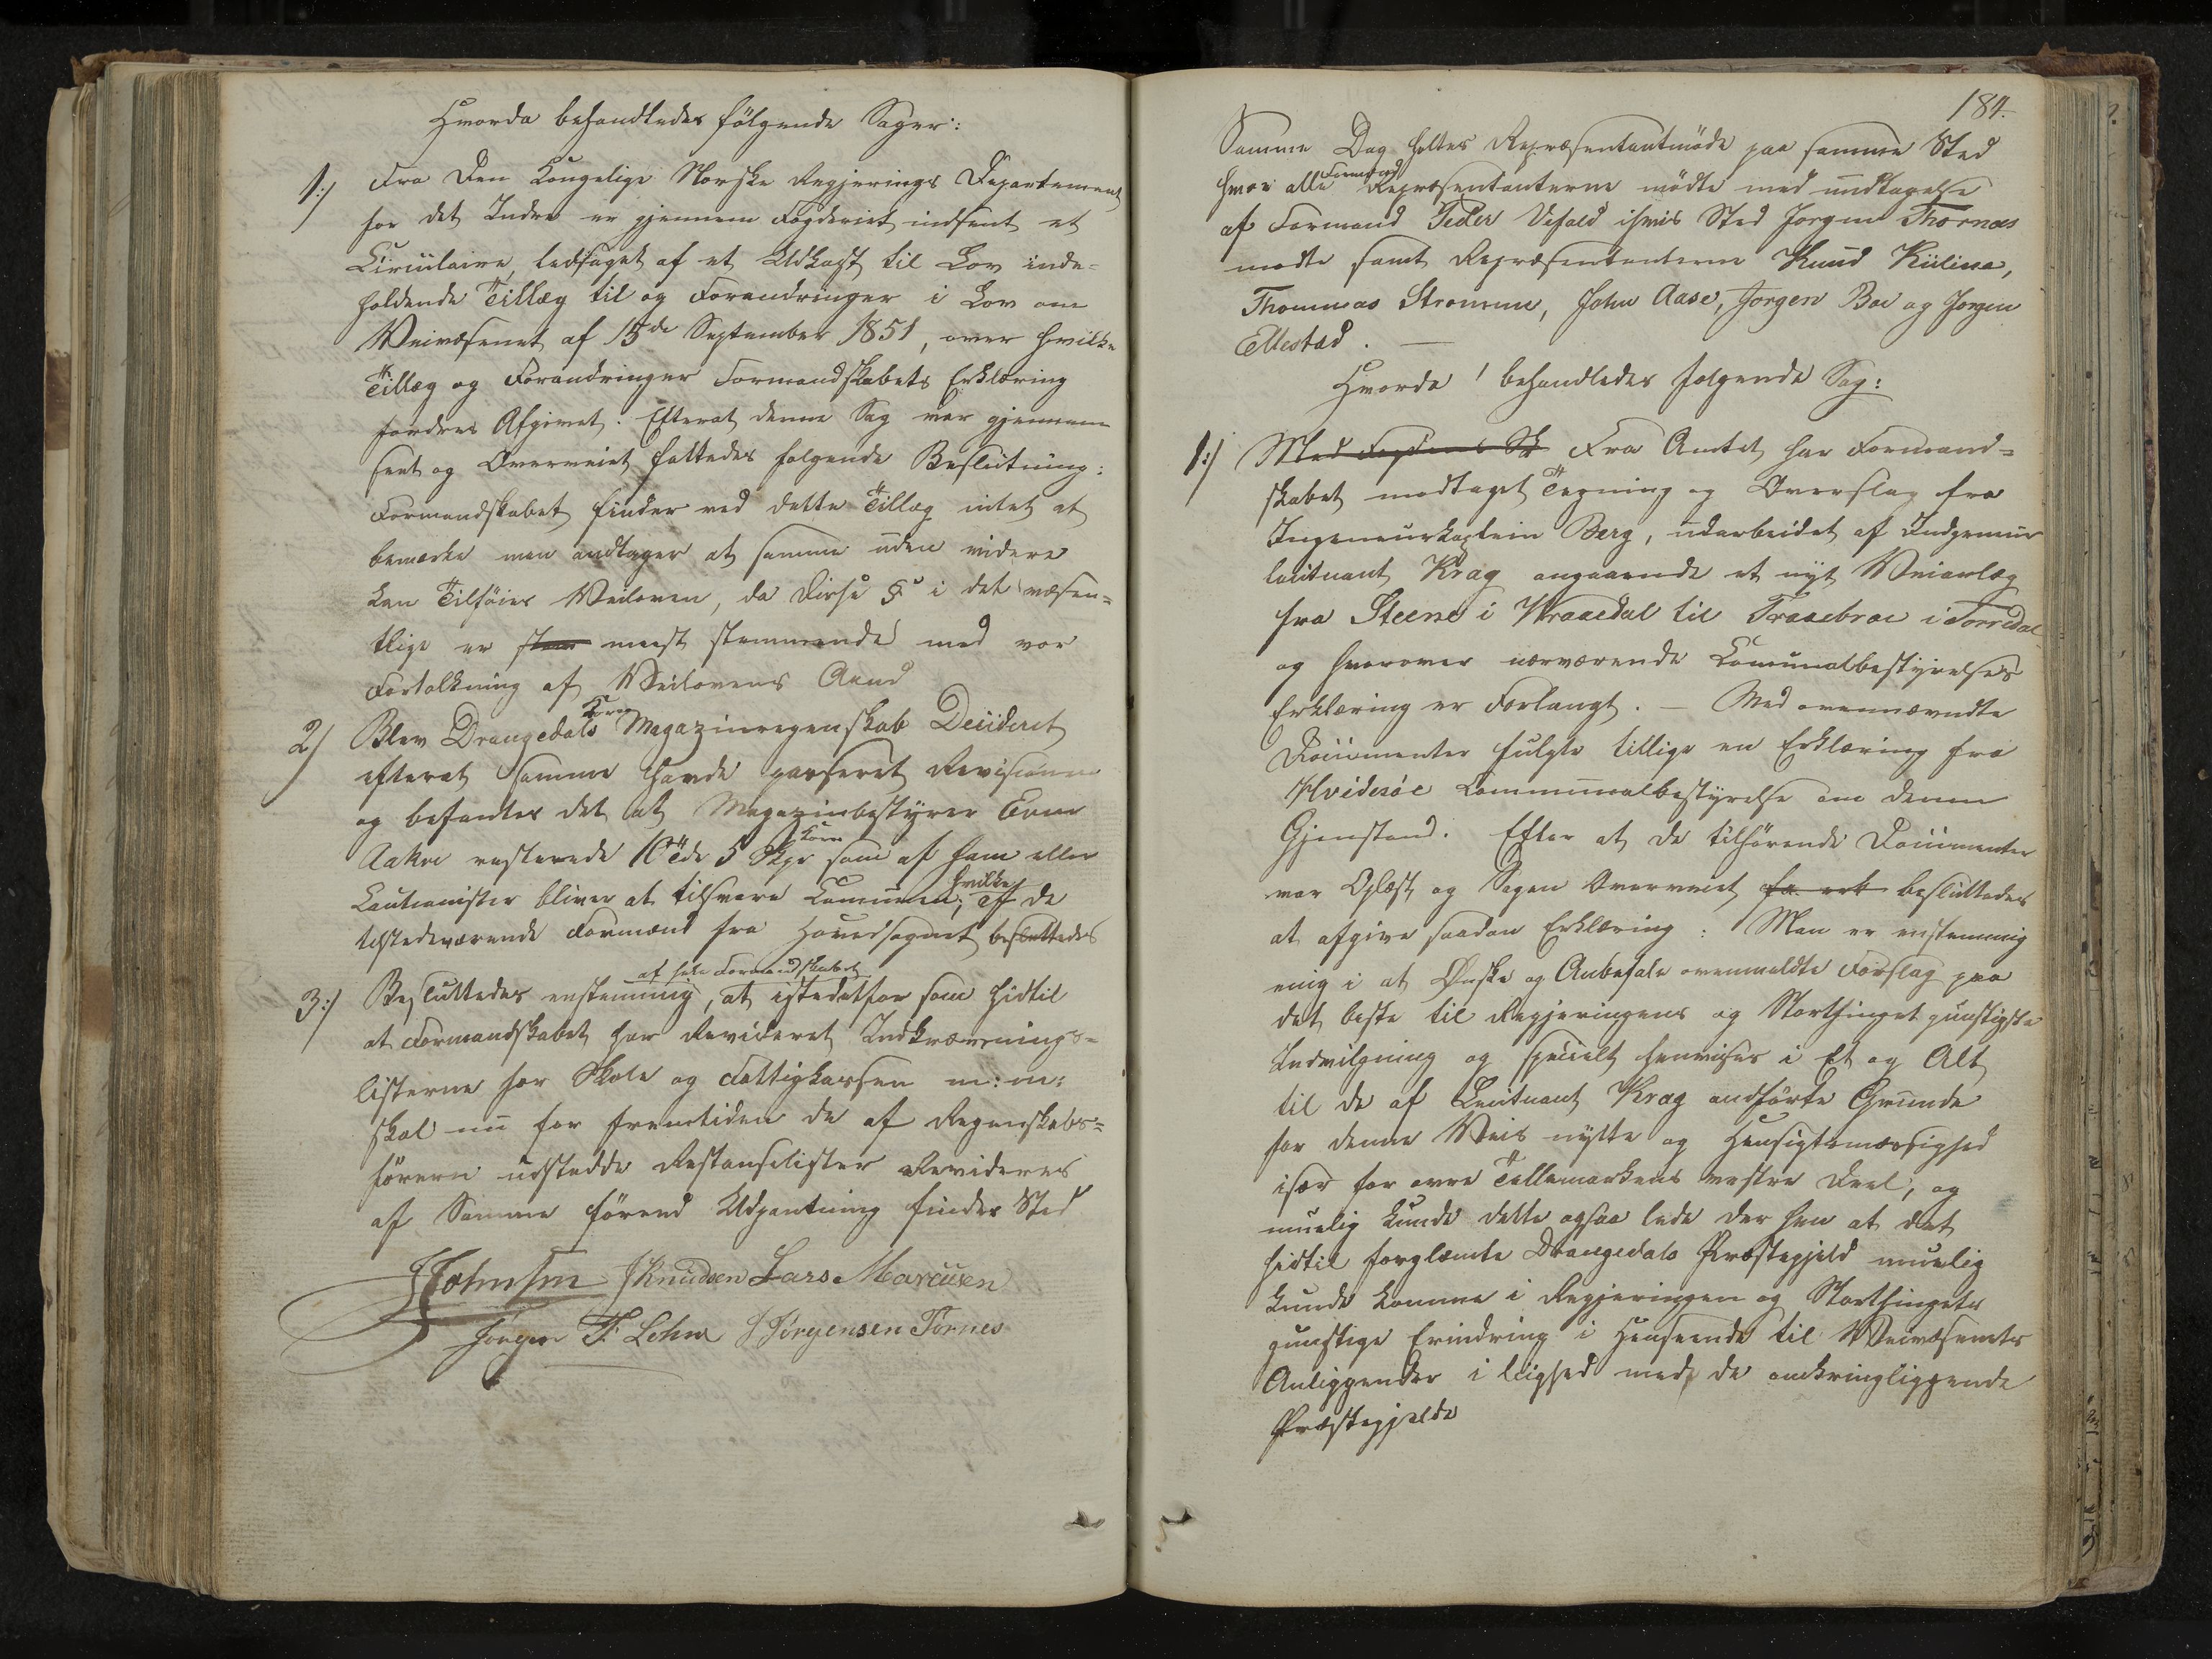 Hvorda behandledes følgende Sager:
1:/ Fra Den Kongelige Norske Regjerings Departement
for det Indre er gjennem Fogderiet indsent et
Circulaire, ledsaget af et Udkast til Lov inde-
holdende Tillæg til og Forandringer i Lov om
Veivæsenet af 15de September 1851, over hvilke
Tillæg og Forandringer Formandskabets Erklæring
fordres Afgivet. Efterat denne Sag var gjennem
seet og Overveiet fattedes følgende Beslutning:
Formandskabet finder ved dette Tillæg intet at
bemærke men andtager at samme uden videre
kan Tilføies Veiloven, da disse § i det væsen-
tlige er meest stemmende med vor
Fortolkning af Veilovens Aand
2/ Blev Drangedals Korn Magazinregenskab Decideret
efterat samme havde passeret Revisionen
og befandtes det at Magazinbestyrer Even
Aakre resterede 10 Tdr 5 Skpr Korn som af ham eller
Cautionister bliver at tilsvare Communen; hvilke af de
tilstedeværende Formænd fra Hovedsognet besluttedes
3:/ Besluttedes enstemmig af hele Formandskabet, at istedetfor som hidtil
at Formandskabet har Revideret Indkrævnings-
listerne for Skole og Fattigkassen m:m:
skal nu for fremtiden de af Regenskabs-
føreren udstedde Restanselister Revideres
af Samme førend Udpantning finder Sted
JJohnsen JKnudsen Lars Marcusen
Jørgen T. Lohne JJørgensen Tørnes
184.
Samme Dag holtes Repræsentantmøde paa samme Sted
hvor alle Formænd Repræsentanterne mødte med undtagelse
af Formand Peder Vefald ihvis Sted Jørgen Thornæs
mødte samt Repræsentanterne Knud Kiiline,
Thommas Strømme, John Aase, Jørgen Boe og Jørgen
Ellestad. —
Hvorda behandledes følgende Sag:
1:/ Med Fogdens Sk Fra Amtet har Formand-
skabet modtaget Tegning og Overslag fra
Ingeneurkaptein Berg, udarbeidet af Indgeniur
lieutnant Krag angaaende et nyt Veianlæg
fra Steene i Hvraaedal til Traaebroe i Torredal
og hvorover nærværende Comunalbestyrelses
Erklæring er Forlangt. — Med ovennævndte
Documenter fulgte tillige en Erklæring fra
Hvidesøe Kommunalbestyrelse om denne
Gjenstand. Efter at de tilhørende Documenter
var Oplæst og Sagen Overveiet besluttedes
at afgive saadan Erklæring: Man er enstemmig
enig i at Ønske og Anbefale ovenmeldte Forslag paa
det beste til Regjeringens og Storthinget gunstigste
Indvilgning og specielt henvises i Et og Alt
til de af Lieutnant Krag andførte Grunde
for denne Veis nytte og Hensigtsmæssighed
især for øvre Tellemarkens vestre Deel; og
muelig kunde dette ogsaa lede der hen at det
hidtil forglæmte Drangedals Præstegjeld muelig
kunde komme i Regjeringen og Storthingets
gunstige Erindring i Henseende til Veivæsenets
Anliggender i liighed med de omkringliggende
Præstegjelde